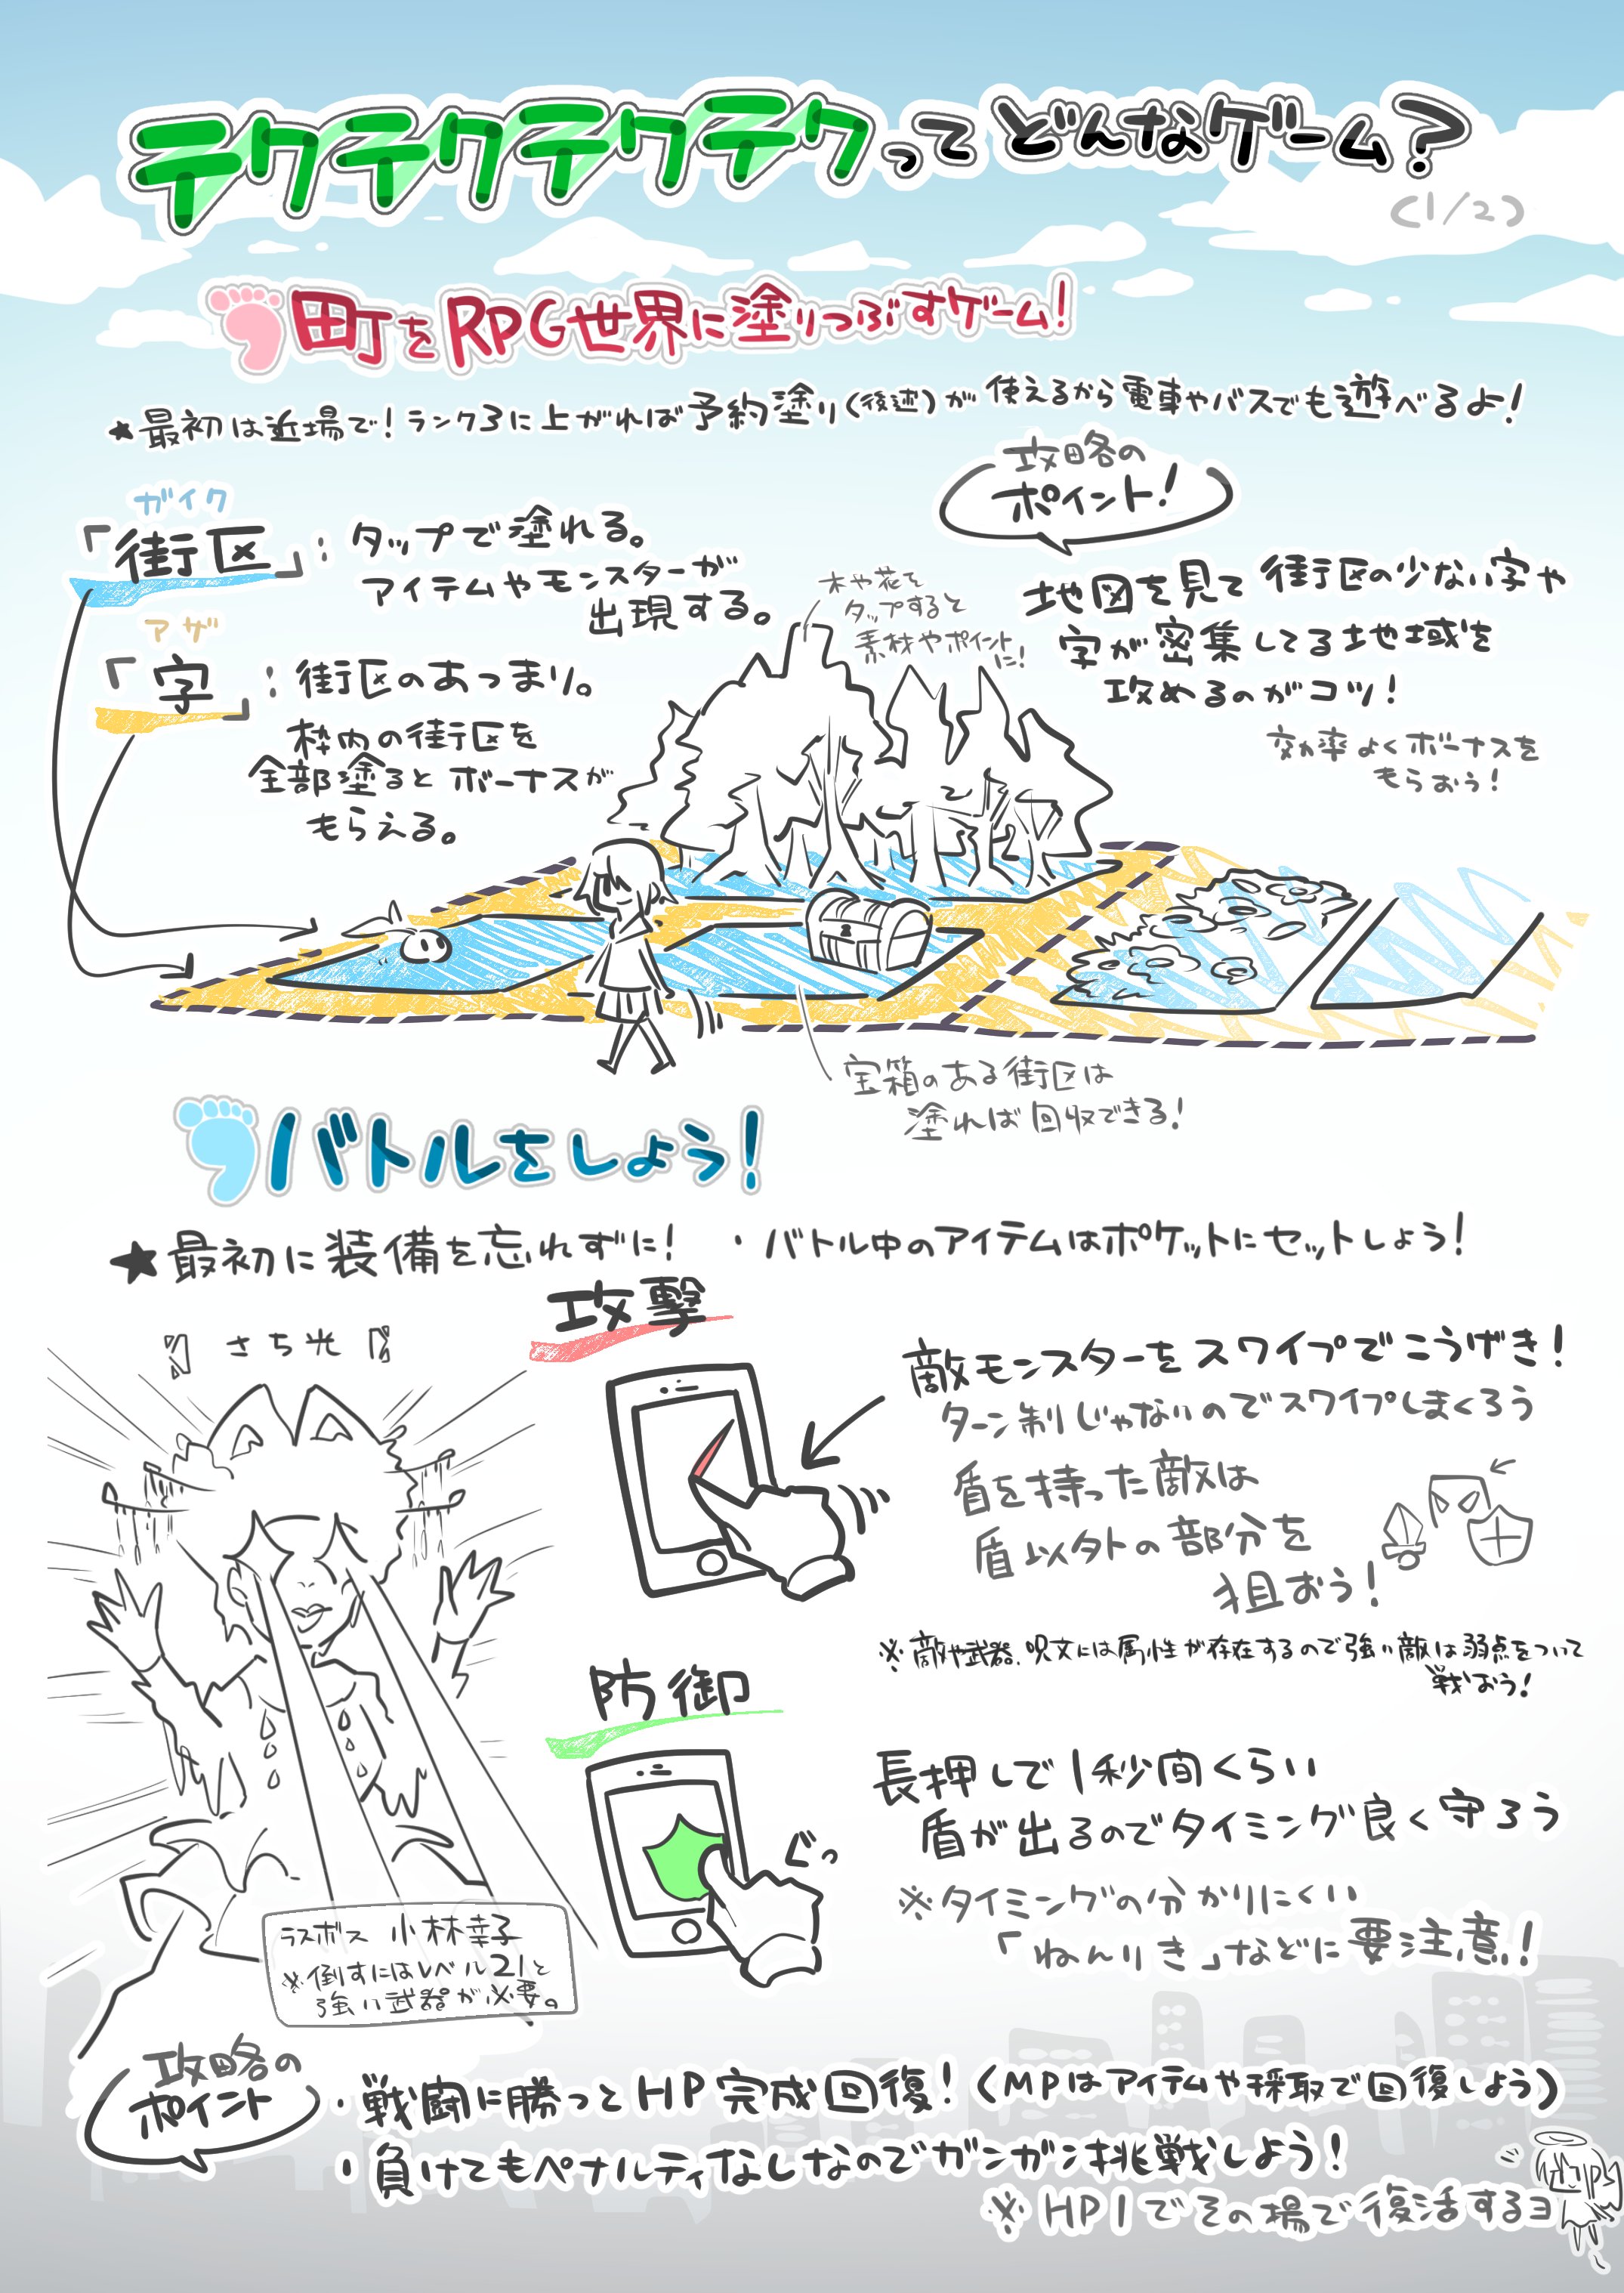 テクテクテクテクってどんなゲーム?
(1/2)
町をRPG世界に塗りつぶすゲーム!
★最初は近場で!ランク3に上がれば予約塗り(後述)が使えるから電車やバスでも遊べるよ!
ガイク
「街区」:タップで塗れる。
アイテムやモンスターが
出現する。
アザ
「字」:街区のあつまり。
枠内の街区を
全部塗るとボーナスが
もらえる。
木や花を
タップすると
素材やポイント
に!
攻略の
ポイント!
地図を見て街区の少ない字や
字が密集してる地域を
攻めるのがコツ!
効率よくボーナスを
もらおう!
宝箱のある街区は
塗れば回収できる!
バトルをしよう!
★最初に装備を忘れずに! ・バトル中のアイテムはポケットにセットしよう!
〝さち光〟
ラスボス 小林幸子
※倒すにはレベル21と
強い武器が必要。
攻撃
敵モンスターをスワイプでこうげき!
ターン制じゃないのでスワイプしまくろう
盾を持った敵は
盾以外の部分を
狙おう!
※敵や武器、呪文には属性が存在するので強い敵は弱点をついて
戦おう!
防御
ぐっ
長押しで1秒間くらい
盾が出るのでタイミング良く守ろう
※タイミングの分かりにくい
「ねんりき」などに要注意!
攻略の
ポイント
・戦闘に勝つとHP完成回復!(MPはアイテムや採取で回復しよう)
・負けてもペナルティなしなのでガンガン挑戦しよう!
※HP1でその場で復活するヨ